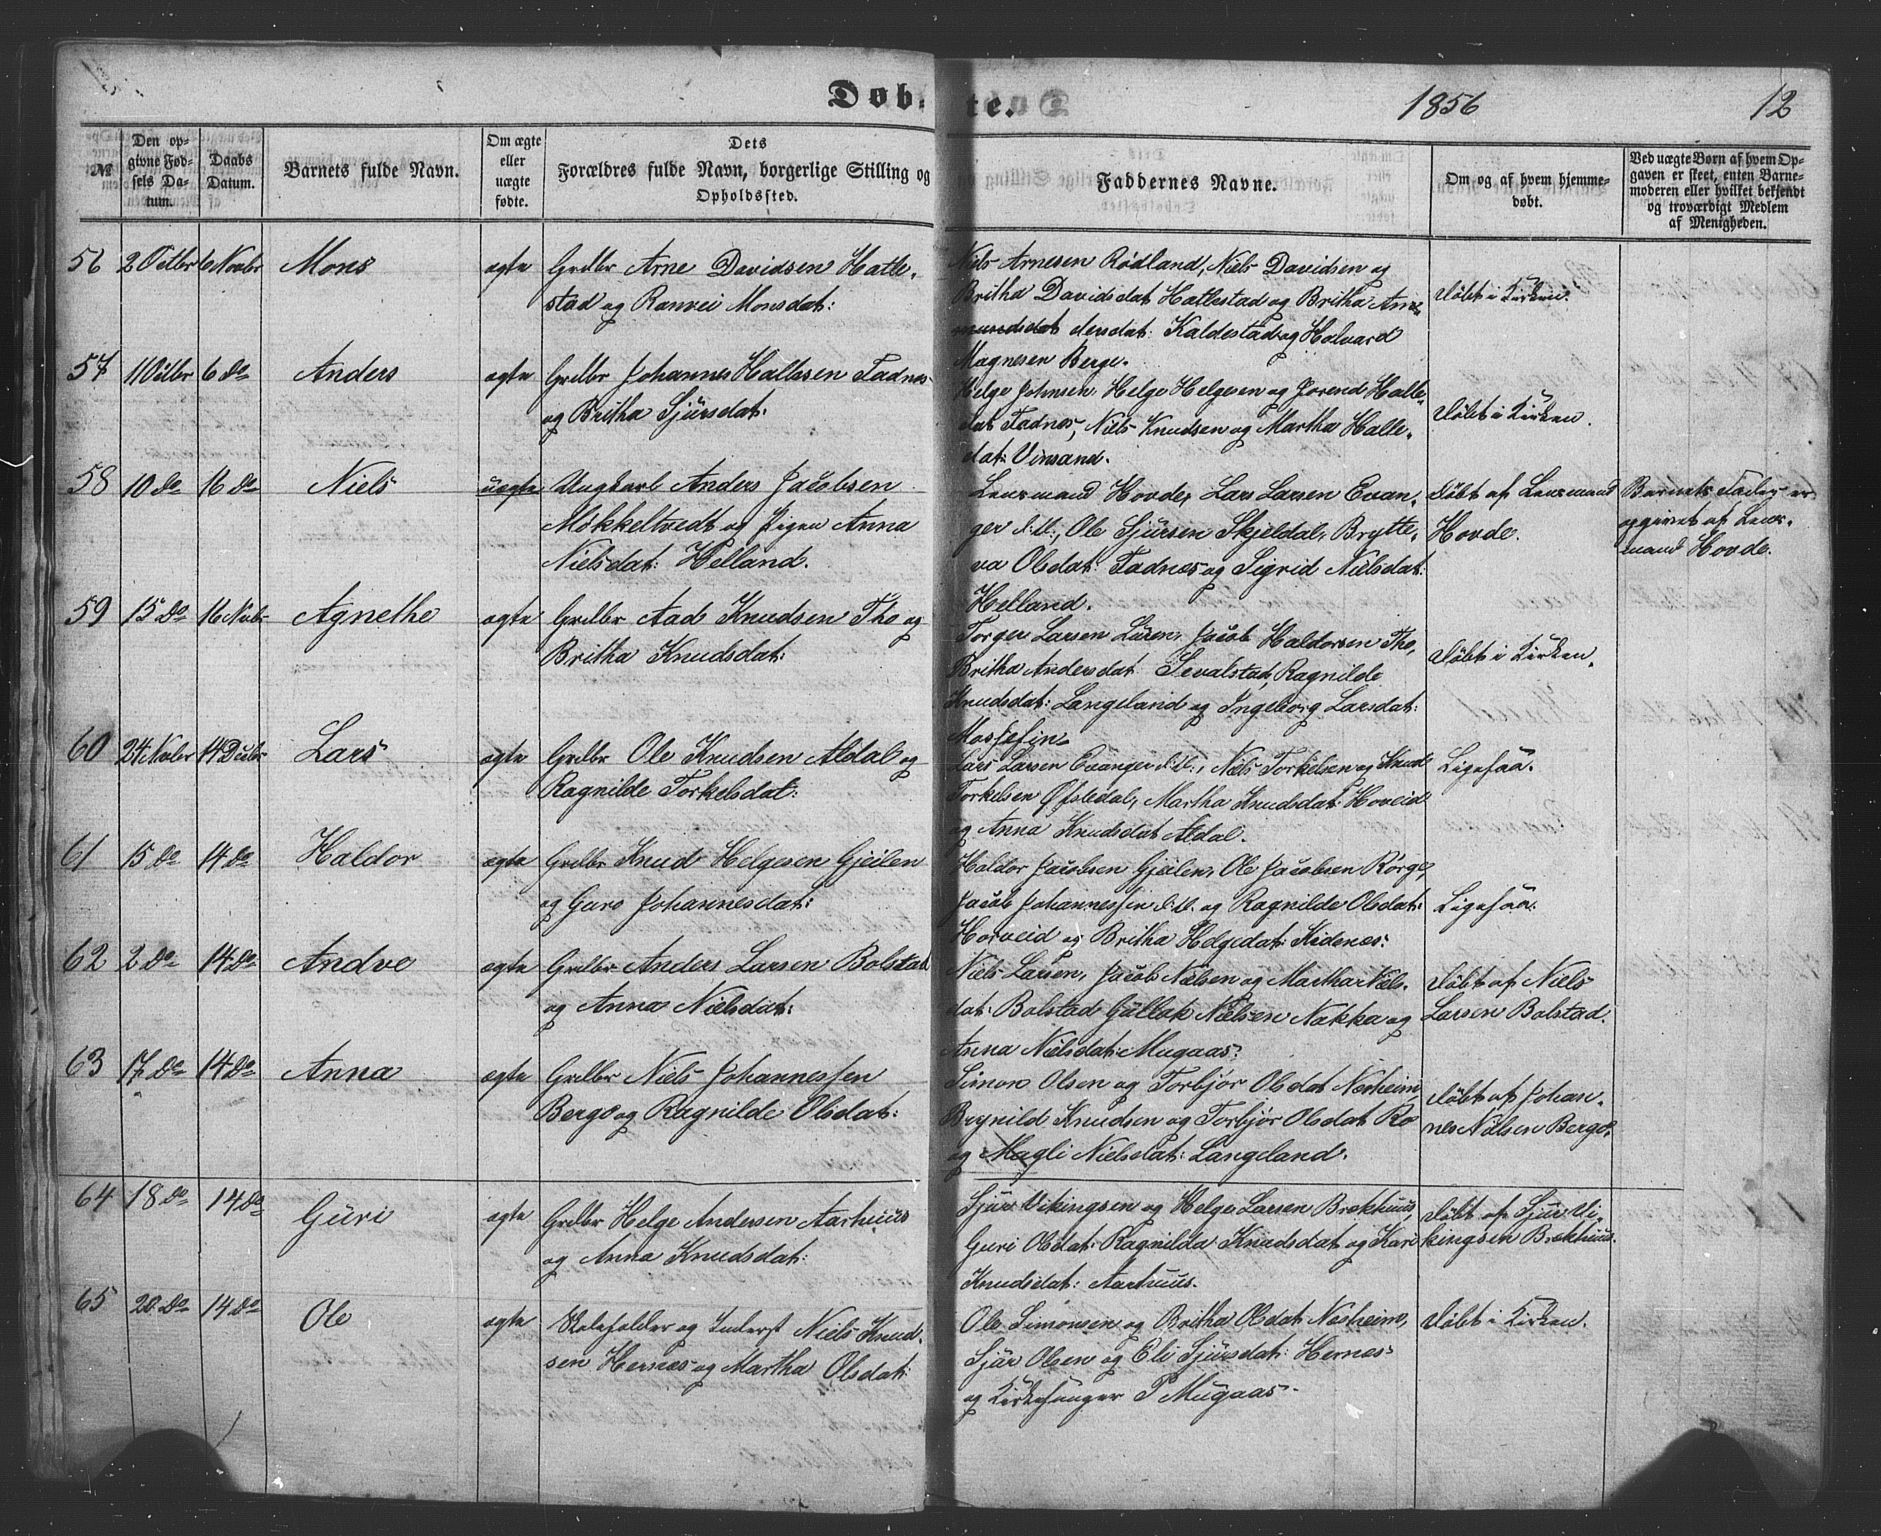 Døb-te. 1856 12
№ Den opgivne Fødsels Datum. Daabs Datum. Barnets fulde Navn. Om ægte eller uægte fødte. Dets Forældres fulde Navn, borgerlige Stilling og Opholdssted. Faddernes Navne. Om og af hvem hjemmedøbt. Ved uægte Børn af hvem Opgaven er skeet, enten Barnemoderen eller hvilket bekjendt og troværdigt Medlem af Menigheden.
56 2 Octbr 6 Novbr Mons ægte Grdbr Arne Davidsen Hatle-
stad og Ranvei Monsdat:
Niels Arnesen Rødland, Niels Davidsen og
Britha Davidsdat Hatlestad og Britha An-
dersdat: Kaldestad og Halvard
Magnesen Berge.
Døbt i Kirken.
57 11 Octbr 6 do Anders ægte Grdbr Johannes Hallesen Fadnes
og Britha Sjursdat:
Helge Johnsen, Helge Helgesen og Jorend Halle-
dat Fadnes, Niels Knudsen og Martha Halle-
dat: Vinsand.
Døbt i Kirken.
58 10 do 16 do Niels uægte Ungkarl Anders Jacobsen
Møkkeltvedt og Pigen Anna
Nielsdat: Helland.
Lensmand Hovde, Lars Larsen Evan-
ger d.æ., Ole Sjursen Skjeldal, Brytte-
va Olsdat: Fadnes og Sigrid Nielsdat:
Helland.
Døbt af Lensmand
Hovde.
Barnets Fader er
opgivet af Lens-
mand Hovde.
59 15 do 16 Novbr Agnethe ægte Grdbr Aad Knudsen Tho og
Britha Knudsdat:
Torger Larsen Lüren, Jacob Haldorsen Tho,
Britha Andersdat Sevalstad, Ragnilde
Knudsdat: Langeland og Ingeborg Larsdat:
Mossefin
Døbt i Kirken.
60 24 Novbr 14 Decbr Lars ægte Grdbr Ole Knudsen Aldal og
Ragnilde Torkelsdat:
Lars Larsen Evanger, Niels Torkelsen og Knud
Torkelsen Øfstedal, Martha Knudsdat: Hoveid
og Anna Knudsdat Aldal.
Ligesaa.
61 15 do 14 do Haldor ægte Grdbr Knud Helgesen Gjeilen
og Guro Johannesdat:
Haldor Jacobsen Gjeilen, Ole Jacobsen Rørge,
Jacob Johannessen og Ragnilde Olsdat:
Horveid og Britha Helgedat: Kidenes:
Ligesaa.
62 2 do 14 do Andve ægte Grdbr Anders Larsen Bolstad
og Anna Nielsdat:
Niels Larsen, Jacob Nielsen og Martha Niels-
dat: Bolstad Gullak Nielsen Nakka og
Anna Nielsdat: Mugaas:
Døbt af Niels
Larsen Bolstad.
63 17 do 14 do Anna ægte Grdbr Niels Johannessen
Berge og Ragnilde Olsdat:
Simon Olsen og Torbjør Olsdat Nesheim,
Brynild Knudsen og Torbjør Olsdat Ro
og Magli Nielsdat: Langeland.
Døbt af Johan-
nes Nilsen Berge.
64 18 do 14 do Guri ægte Grdbr Helge Andersen Aarhuus
og Anna Knudsdat:
Sjur Vikingsen og Helge Larsen Brækhuus,
Guri Olsdat: Ragnilda Knudsdat og Kari
Knudsdat: Aarhuus.
Døbt af Sjur Vi-
kingsen Brækhuus.
65 20 do 14 do Ole ægte Skoleholder og Inderst Niels Knud-
sen Hernes og Martha Olsdat:
Ole Simonsen og Britha Olsdat Nesheim,
Sjur Olsen og Eli Sjursdat: Hernes
og Kirkesanger P Mugaas.
Døbt i Kirken.